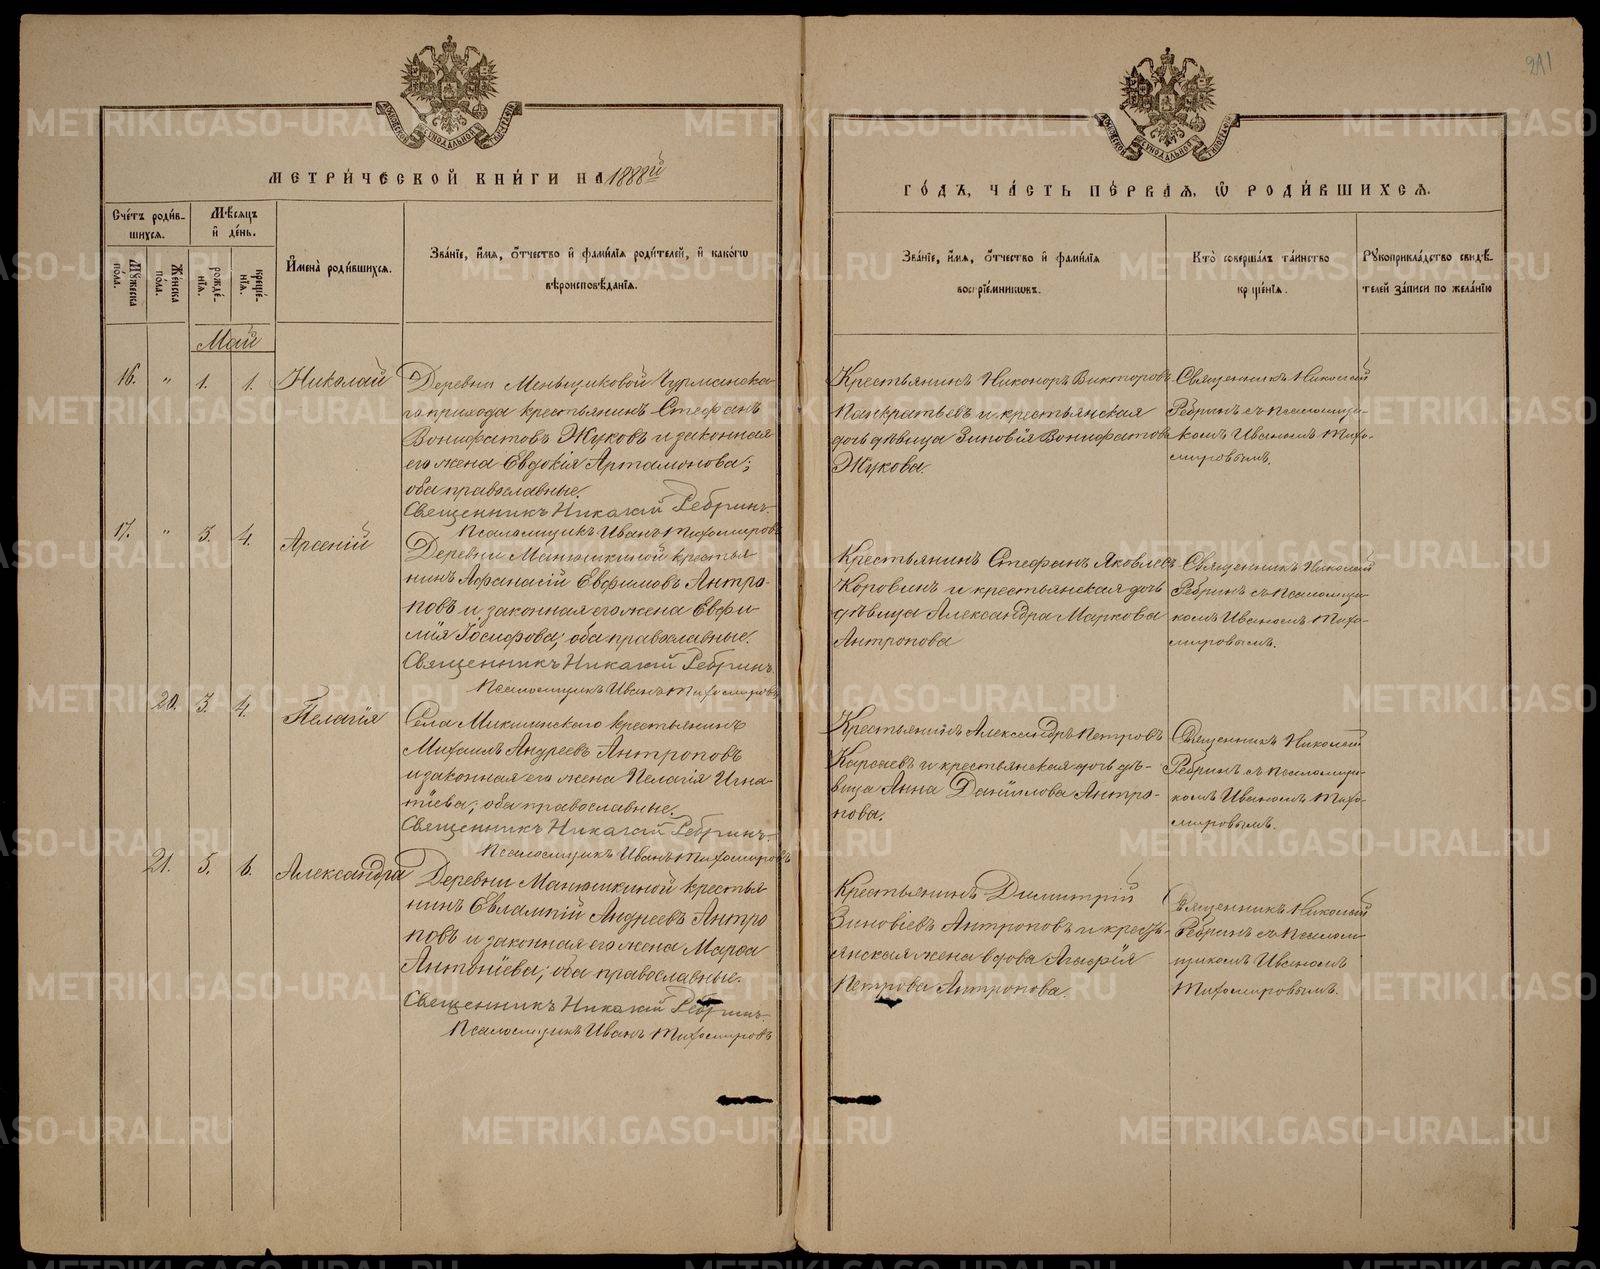 241
МЕТРИ́ЧЕСКОЙ КНИ́ГИ НА 1888й
ГО́ДЪ, ЧА́СТЬ ПЕ́РВАЯ, Ѿ РОДИ́ВШИХСЯ.
Сче́тъ роди́в-
шихся.
Мѣ́сяцъ
и҆ де́нь.
Мꙋ́жеска
по́ла.
Же́нска
по́ла.
рожде́-
нїя.
креще́-
нїя.
И҆мена̀ роди́вшихся.
Зва́нїе, и҆́мя, ѻ҆́тчество и҆ фами́лїя роди́телей, и҆ како́гѡ
вѣроисповѣ́данїя.
Зва́нїе, и҆́мя, ѻ҆́тчество и҆ фами́лїя
воспрїе́мникѡвъ.
Кто̀ соверша́лъ та́инство
крⷭ҇ще́нїя.
Рꙋкоприкла́дство свидѣ́-
телей за́писи по жела́нїю
Май
16. " 1. 1. Николай
Деревни Меньщиковой Чурманска-
го прихода крестьянинъ Стефанъ
Вонифатовъ Жуковъ и законная
его жена Евдокія Артамонова;
оба православные.
Священникъ Николай Ребринъ.
Псаломщикъ Иванъ Тихомировъ
Крестьянинъ Никоноръ Викторовъ
Панкратьевъ и крестьянская
дочь дѣвица Зиновія Вонифатова
Жукова
Священникъ Николай
Ребринъ съ псаломщи-
комъ Иваномъ Тихо-
мировымъ.
17. " 3. 4. Арсеній
Деревни Манюшкиной крестья-
нинъ Афанасій Евфимовъ Антро-
повъ и законная его жена Евфи-
мія Іосифова; оба православные.
Священникъ Николай Ребринъ
Псаломщикъ Иванъ Тихомировъ
Крестьянинъ Стефанъ Яковлевъ
Коровинъ и крестьянская дочь
дѣвица Александра Маркова
Антропова
Священникъ Николай
Ребринъ съ псаломщи-
комъ Иваномъ Тихо-
мировымъ.
20. 3. 4. Пелагія
Села Микшинского крестьянинъ
Михаилъ Андреевъ Антроповъ
и законная его жена Пелагія Игна-
тіева; оба православные.
Священникъ Николай Ребринъ
Псаломщикъ Иванъ Тихомировъ
Крестьянинъ Александръ Петровъ
и крестьянская дочь дѣ-
вица Анна Даніилова Антро-
пова.
Священникъ Николай
Ребринъ съ псаломщи-
комъ Иваномъ Тихо-
мировымъ.
21. 5. 6. Александра
Деревни Манюшкиной крестья-
нинъ Евлампій Андреевъ Антро
повъ и законная его жена Марѳа
Антоніева; оба православные.
Священникъ Николай Ребринъ
Псаломщикъ Иванъ Тихомировъ
Крестьянинъ Димитрій
Зиновіевъ Антроповъ и кресть-
янская жена вдова Агафія
Петрова Антропова.
Священникъ Николай
Ребринъ съ псалом
щикомъ Иваномъ
Тихомировымъ.
METRIKI.GASO-URAL.RU